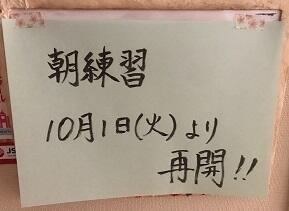 朝練習
10月1日(火)より
再開!!
JS